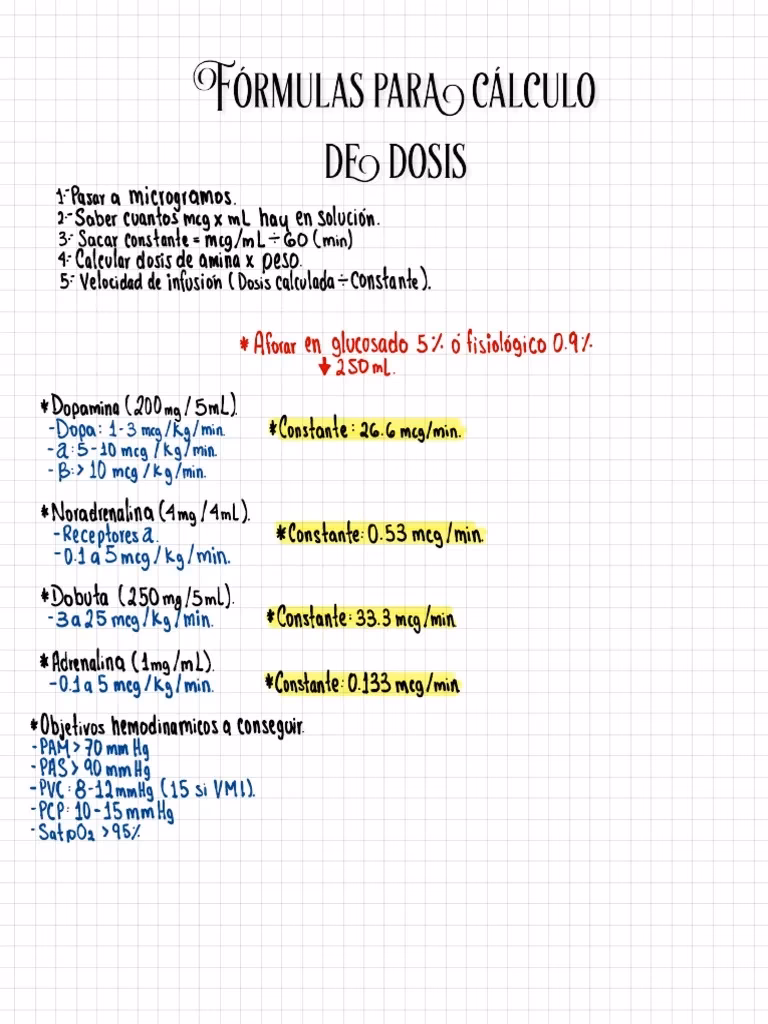 Fórmulas para cálculo
de dosis
1.- Pasar a microgramos.
2.- Saber cuantos mcg x mL hay en solución.
3.- Sacar constante = mcg/mL ÷ 60 (min)
4.- Calcular dosis de amina x peso.
5.- Velocidad de infusión (Dosis calculada ÷ Constante).
* Aforar en glucosado 5% ó fisiológico 0.9%
↓ 250 mL.
* Dopamina (200 mg / 5mL).
- Dopa: 1-3 mcg/Kg/min.
* Constante: 26.6 mcg/min.
- a: 5-10 mcg /Kg/min.
- β: > 10 mcg/Kg/min.
* Noradrenalina (4mg / 4mL).
- Receptores a.
* Constante: 0.53 mcg/min.
- 0.1 a 5 mcg/Kg/min.
* Dobuta (250 mg/5mL).
- 3 a 25 mcg/Kg/min.
* Constante: 33.3 mcg/min
* Adrenalina (1mg/mL).
- 0.1 a 5 mcg/Kg/min.
* Constante: 0.133 mcg/min
* Objetivos hemodinamicos a conseguir.
- PAM > 70 mmHg
- PAS > 90 mmHg
- PVC: 8-12mmHg (15 si VMI).
- PCP: 10-15 mmHg
- SatpO2 > 95%